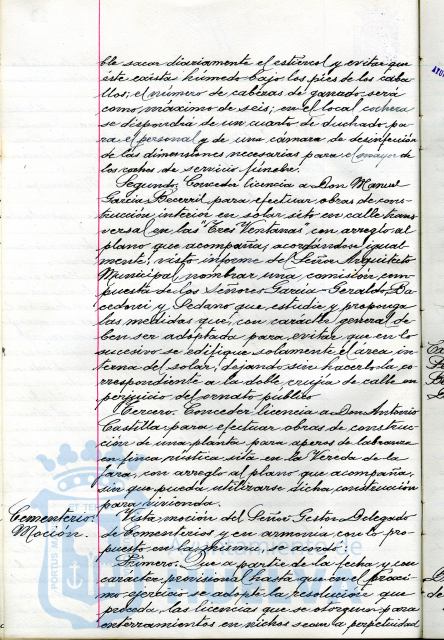 ble sacar diariamente el estiercol y evitar que
éste exista húmedo bajo los pies de los caba-
llos; el número de cabezas de ganado será
como máximo de seis; en el local cochera
se dispondrá de un cuarto de duchado pa-
ra el personal y de una cámara de desinfección
de las dimensiones necesarias para el mayor de
los coches de servicio fúnebre.
Segundo: Conceder licencia a Don Manuel
Garcia Becerril para efectuar obras de cons-
trucción interior en solar sito en calle trans-
versal en las "Tres Ventanas" con arreglo al
plano que acompaña, acordándose igual-
mente, visto informe del Señor Arquitecto
Municipal, nombrar una comisión com-
puesta de los Señores Garcia-Geraldo, Ba-
cedoni y Sedano que estudie y proponga
las medidas que, con carácter general de-
ben ser adoptada para evitar que en lo
sucesivo se edifique solamente el area in-
terna del solar, dejando sin hacerlo la co-
rrespondiente a la doble crujía de calle en
perjuicio del ornato público
Tercero: Conceder licencia a Don Antonio
Castilla para efectuar obras de construc-
ción de una planta para aperos de labranza
en finca rústica sita en la Vereda de la
Jara, con arreglo al plano que acompaña,
sin que pueda utilizarse dicha construcción
para vivienda.
Cementerio: Vista moción del Señor Gestor Delegado
Moción. de Cementerios y en armonia con lo pro-
puesto en la misma, se acordó
Primero: Que a partir de la fecha y con
carácter provisional hasta que en el proxi-
mo ejercicio se adopte la resolución que
proceda, las licencias que se otorguen para
enterramientos en nichos sean a perpetuidad
PORTUS